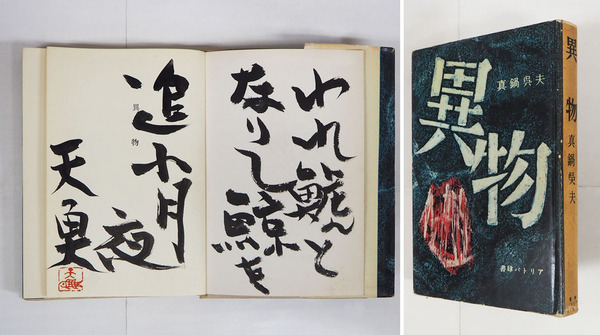 われ鯱と
なりて鯨を
追ふ月夜
天魚
異物
真鍋呉夫
異物
書肆パトリア
異物 真鍋呉夫